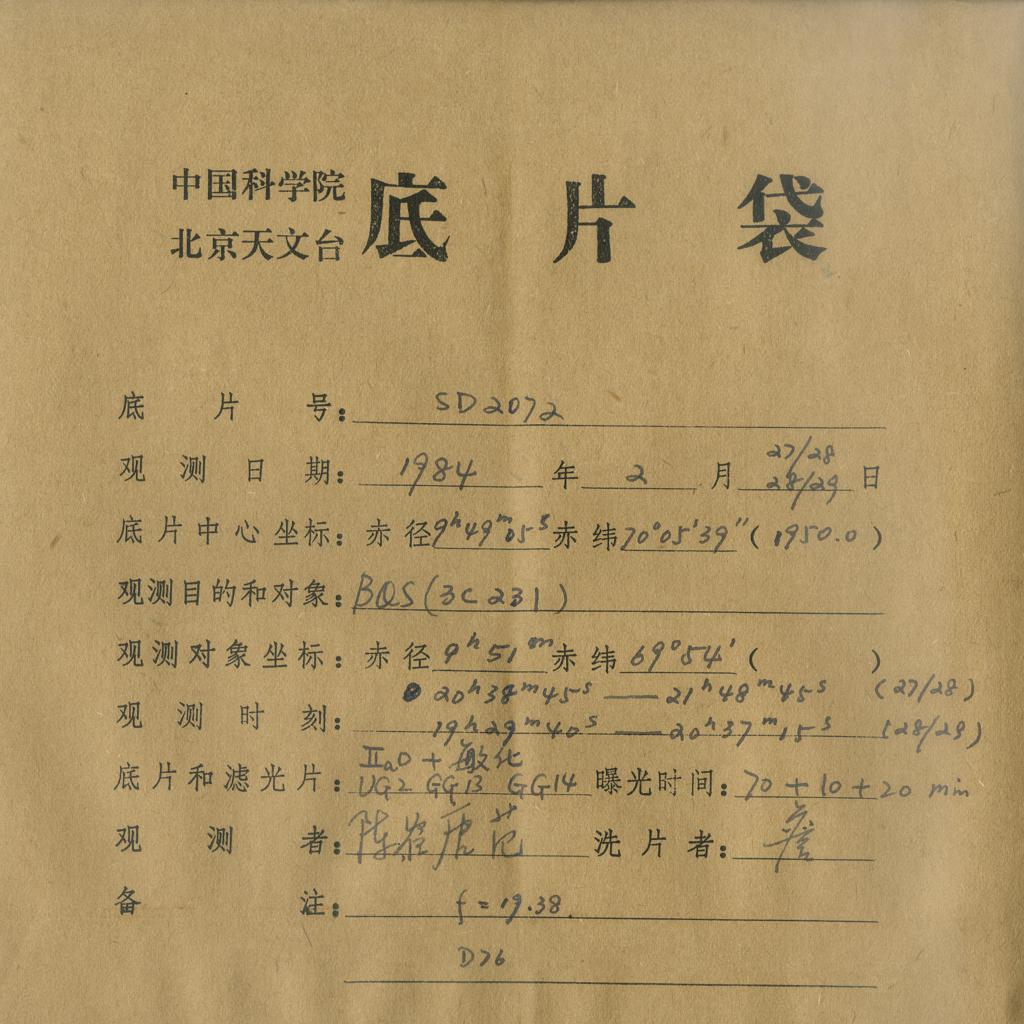 中国科学院
北京天文台
底片袋
底片号： SD2072
观测日期： 1984 年 2 月 27/28 28/29 日
底片中心坐标： 赤径 9h49m05s 赤纬 70°05′39″ ( 1950.0 )
观测目的和对象： BQS (3C231)
观测对象坐标： 赤径 9h51m 赤纬 69°54′ ( )
20h38m45s — 21h48m45s (27/28)
观测时刻： 19h29m40s — 20h37m15s (28/29)
IIaO + 敏化
底片和滤光片： UG2 GG13 GG14 曝光时间： 70 + 10 + 20 min
观测者： 陈 崔 唐 范 洗片者： 詹
备注： f = 19.38
D76